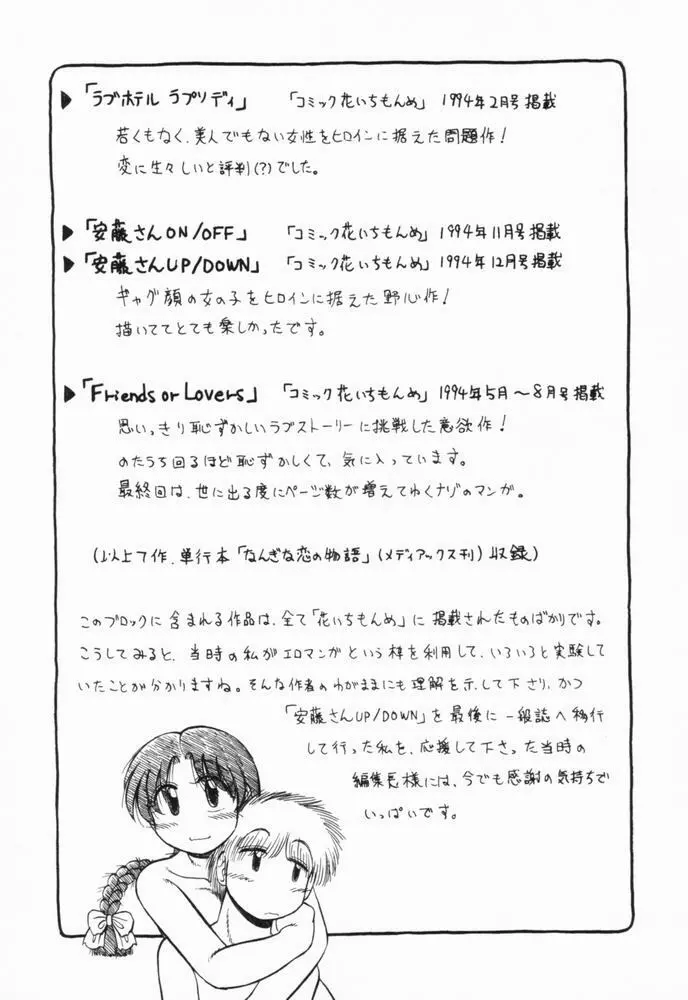 ▶「ラブホテル ラプソディ」 「コミック花いちもんめ」 1994年2月号掲載
若くもなく、美人でもない女性をヒロインに据えた問題作!
変に生々しいと評判(?)でした。
▶「安藤さんON/OFF」 「コミック花いちもんめ」 1994年11月号掲載
▶「安藤さんUP/DOWN」 「コミック花いちもんめ」 1994年12月号掲載
ギャグ顔の女の子をヒロインに据えた野心作!
描いててとても楽しかったです。
▶「Friends or Lovers」 「コミック花いちもんめ」 1994年5月〜8月号掲載
思いっきり恥ずかしいラブストーリーに挑戦した意欲作!
のたうち回るほど恥ずかしくて、気に入っています。
最終回は、世に出る度にページ数が増えてゆくナゾのマンガ。
(以上7作、単行本「なんぎな恋の物語」(メディアックス刊)収録)
このブロックに含まれる作品は、全て「花いちもんめ」に掲載されたものばかりです。
こうしてみると、当時の私がエロマンガという枠を利用して、いろいろと実験して
いたことが分かりますね。そんな作者のわがままにも理解を示して下さり、かつ
「安藤さんUP/DOWN」を最後に一般誌へ移行
して行った私を、応援して下さった当時の
編集長様には、今でも感謝の気持ちで
いっぱいです。